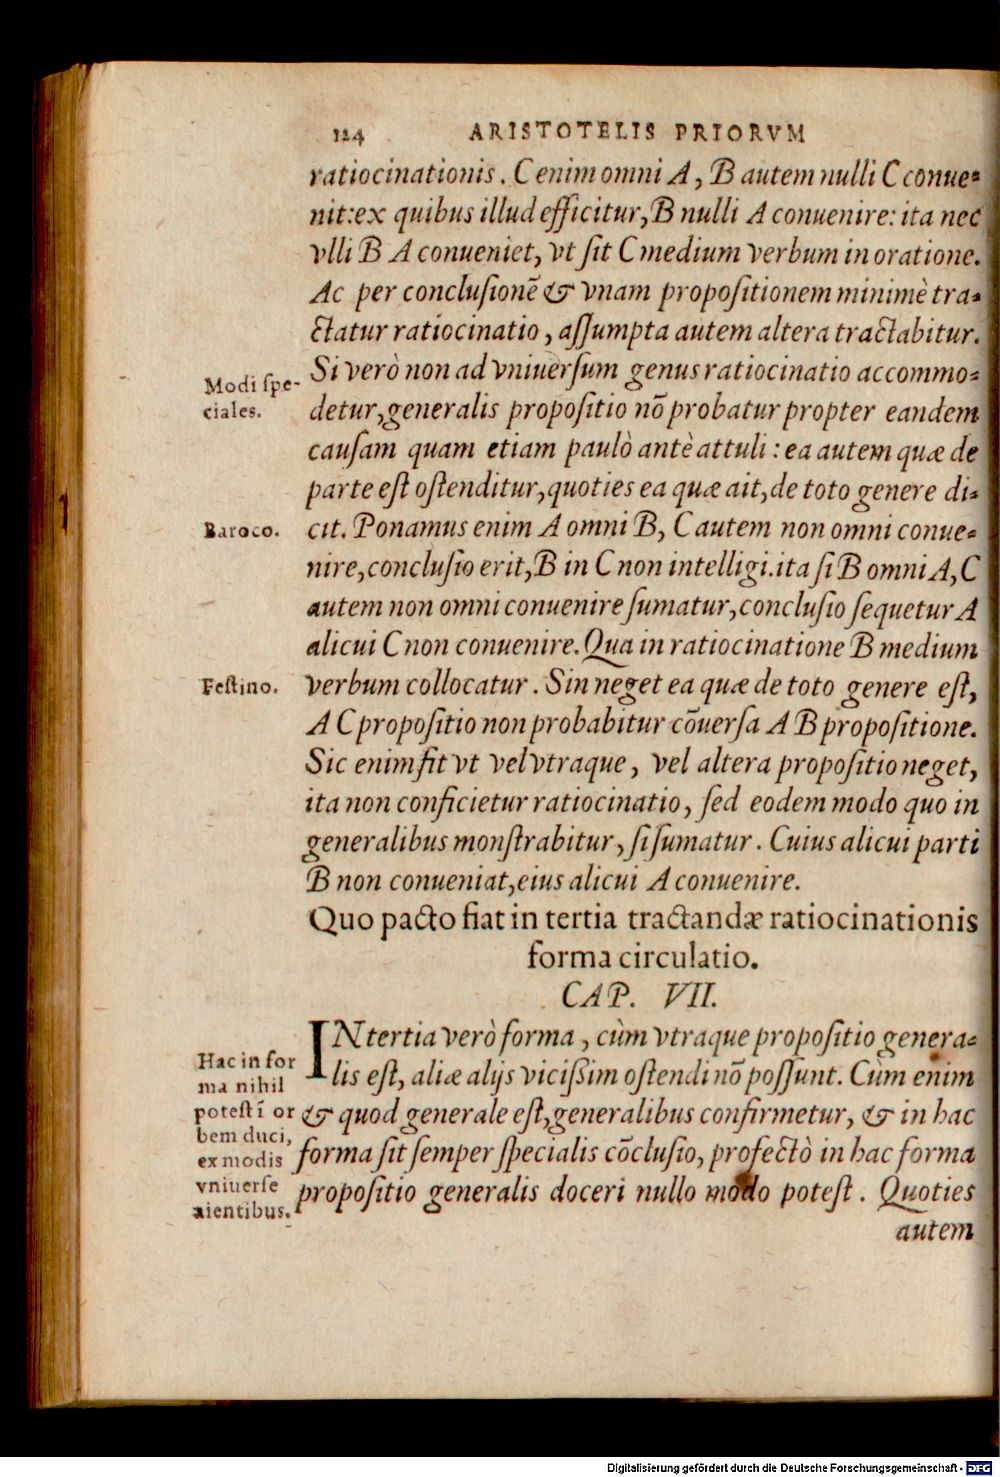 124 ARISTOTELIS PRIORVM
ratiocinationis. C enim omni A, B autem nulli C conue-
nit: ex quibus illud efficitur, B nulli A conuenire: ita nec
vlli B A conueniet, vt sit C medium verbum in oratione.
Ac per conclusionẽ & vnam propositionem minimè tra-
ctatur ratiocinatio, assumpta autem altera tractabitur.
Modi spe-
ciales.
Si verò non ad vniuersum genus ratiocinatio accommo-
detur, generalis propositio nõ probatur propter eandem
causam quam etiam paulò antè attuli: ea autem quæ de
parte est ostenditur, quoties ea quæ ait, de toto genere di-
Baroco.
cit. Ponamus enim A omni B, C autem non omni conue-
nire, conclusio erit, B in C non intelligi. ita si B omni A, C
autem non omni conuenire sumatur, conclusio sequetur A
alicui C non conuenire. Qua in ratiocinatione B medium
Festino.
verbum collocatur. Sin neget ea quæ de toto genere est,
A C propositio non probabitur cõuersa A B propositione.
Sic enim fit vt vel vtraque, vel altera propositio neget,
ita non conficietur ratiocinatio, sed eodem modo quo in
generalibus monstrabitur, si sumatur. Cuius alicui parti
B non conueniat, eius alicui A conuenire.
Quo pacto fiat in tertia tractandæ ratiocinationis
forma circulatio.
CAP. VII.
Hac in for
ma nihil
potest ĩ or
bem duci,
ex modis
vniuerse
aientibus.
IN tertia verò forma, cùm vtraque propositio genera-
lis est, aliæ alijs vicissim ostendi nõ possunt. Cùm enim
& quod generale est, generalibus confirmetur, & in hac
forma sit semper specialis cõclusio, profectò in hac forma
propositio generalis doceri nullo modo potest. Quoties
autem
Digitalisierung gefördert durch die Deutsche Forschungsgemeinschaft - DFG